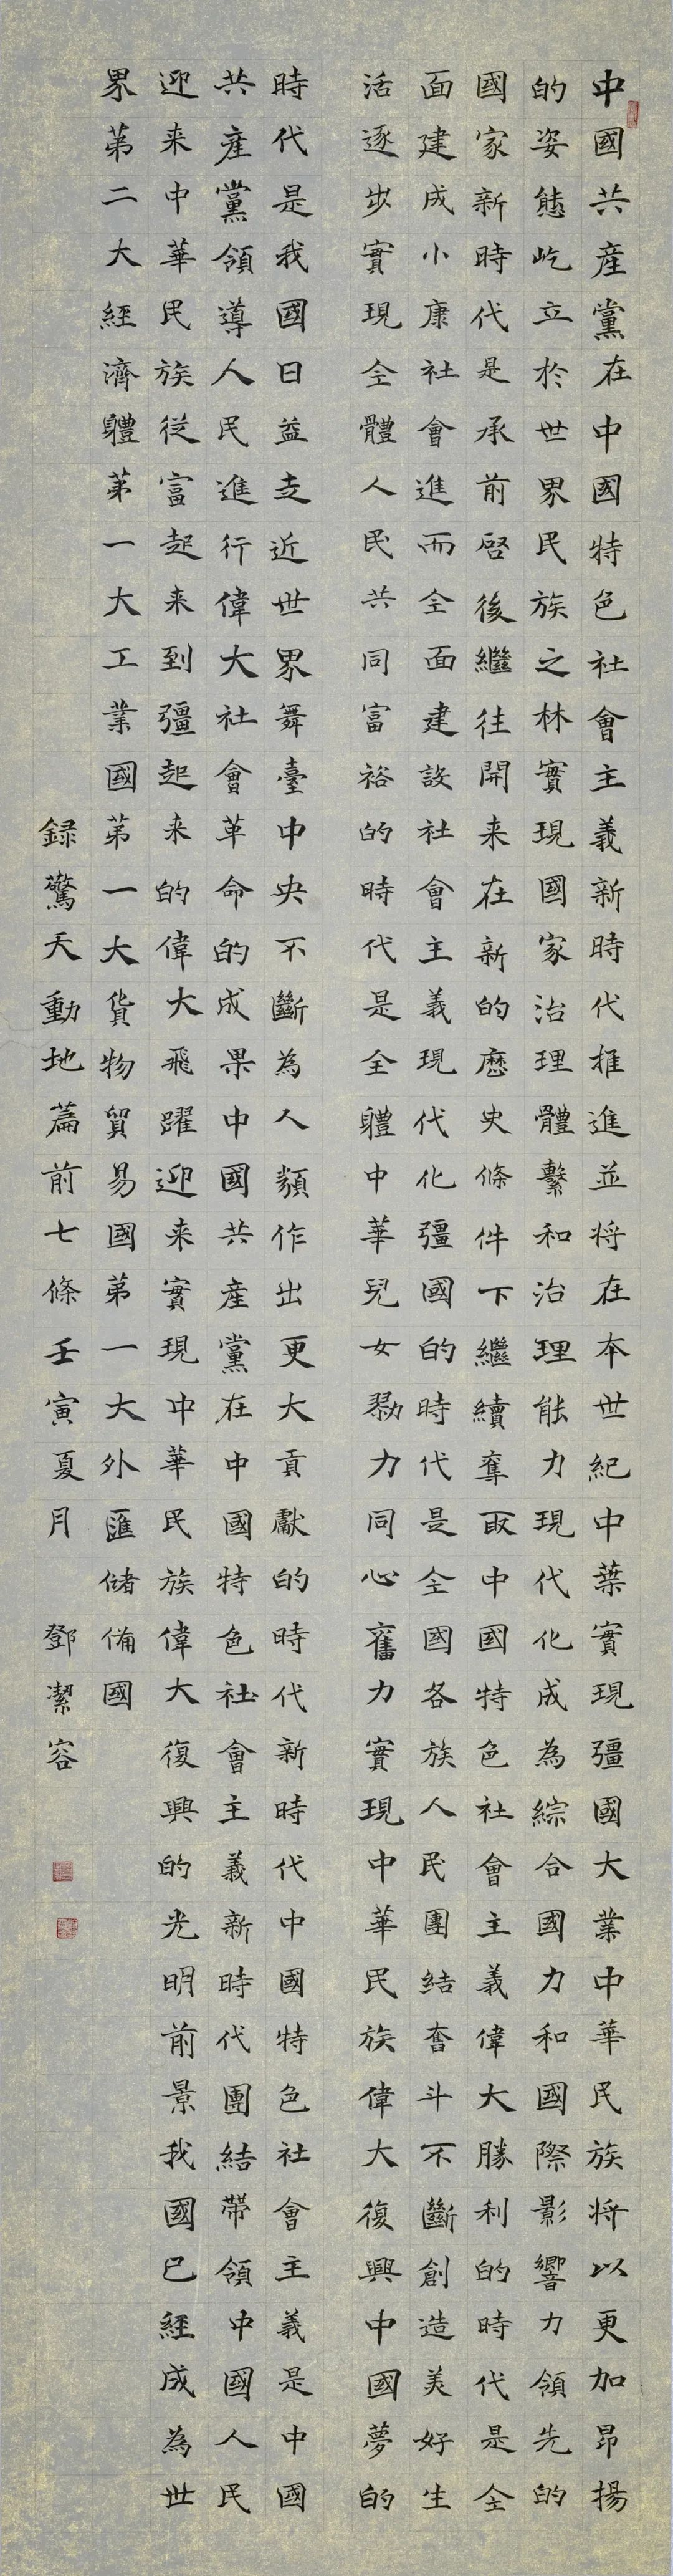 中國共産黨在中國特色社會主義新時代推進並将在本世紀中葉實現彊國大業中華民族将以更加昂揚
的姿態屹立於世界民族之林實現國家治理體繫和治理能力現代化成為綜合國力和國際影響力領先的
國家新時代是承前啓後繼往開来在新的歷史條件下繼續奪取中國特色社會主義偉大勝利的時代是全
面建成小康社會進而全面建設社會主義現代化彊國的時代是全國各族人民團結奮斗不斷創造美好生
活逐步實現全體人民共同富裕的時代是全軆中華兒女勠力同心奮力實現中華民族偉大復興中國夢的
時代是我國日益走近世界舞臺中央不斷為人類作出更大貢獻的時代新時代中國特色社會主義是中國
共産黨領導人民進行偉大社會革命的成果中國共産黨在中國特色社會主義新時代團結帶領中國人民
迎来中華民族従富起来到彊起来的偉大飛躍迎来實現中華民族偉大復興的光明前景我國已經成為世
界第二大經濟軆第一大工業國第一大貨物貿易國第一大外匯儲備國
録驚天動地篇前七條壬寅夏月 鄧潔容